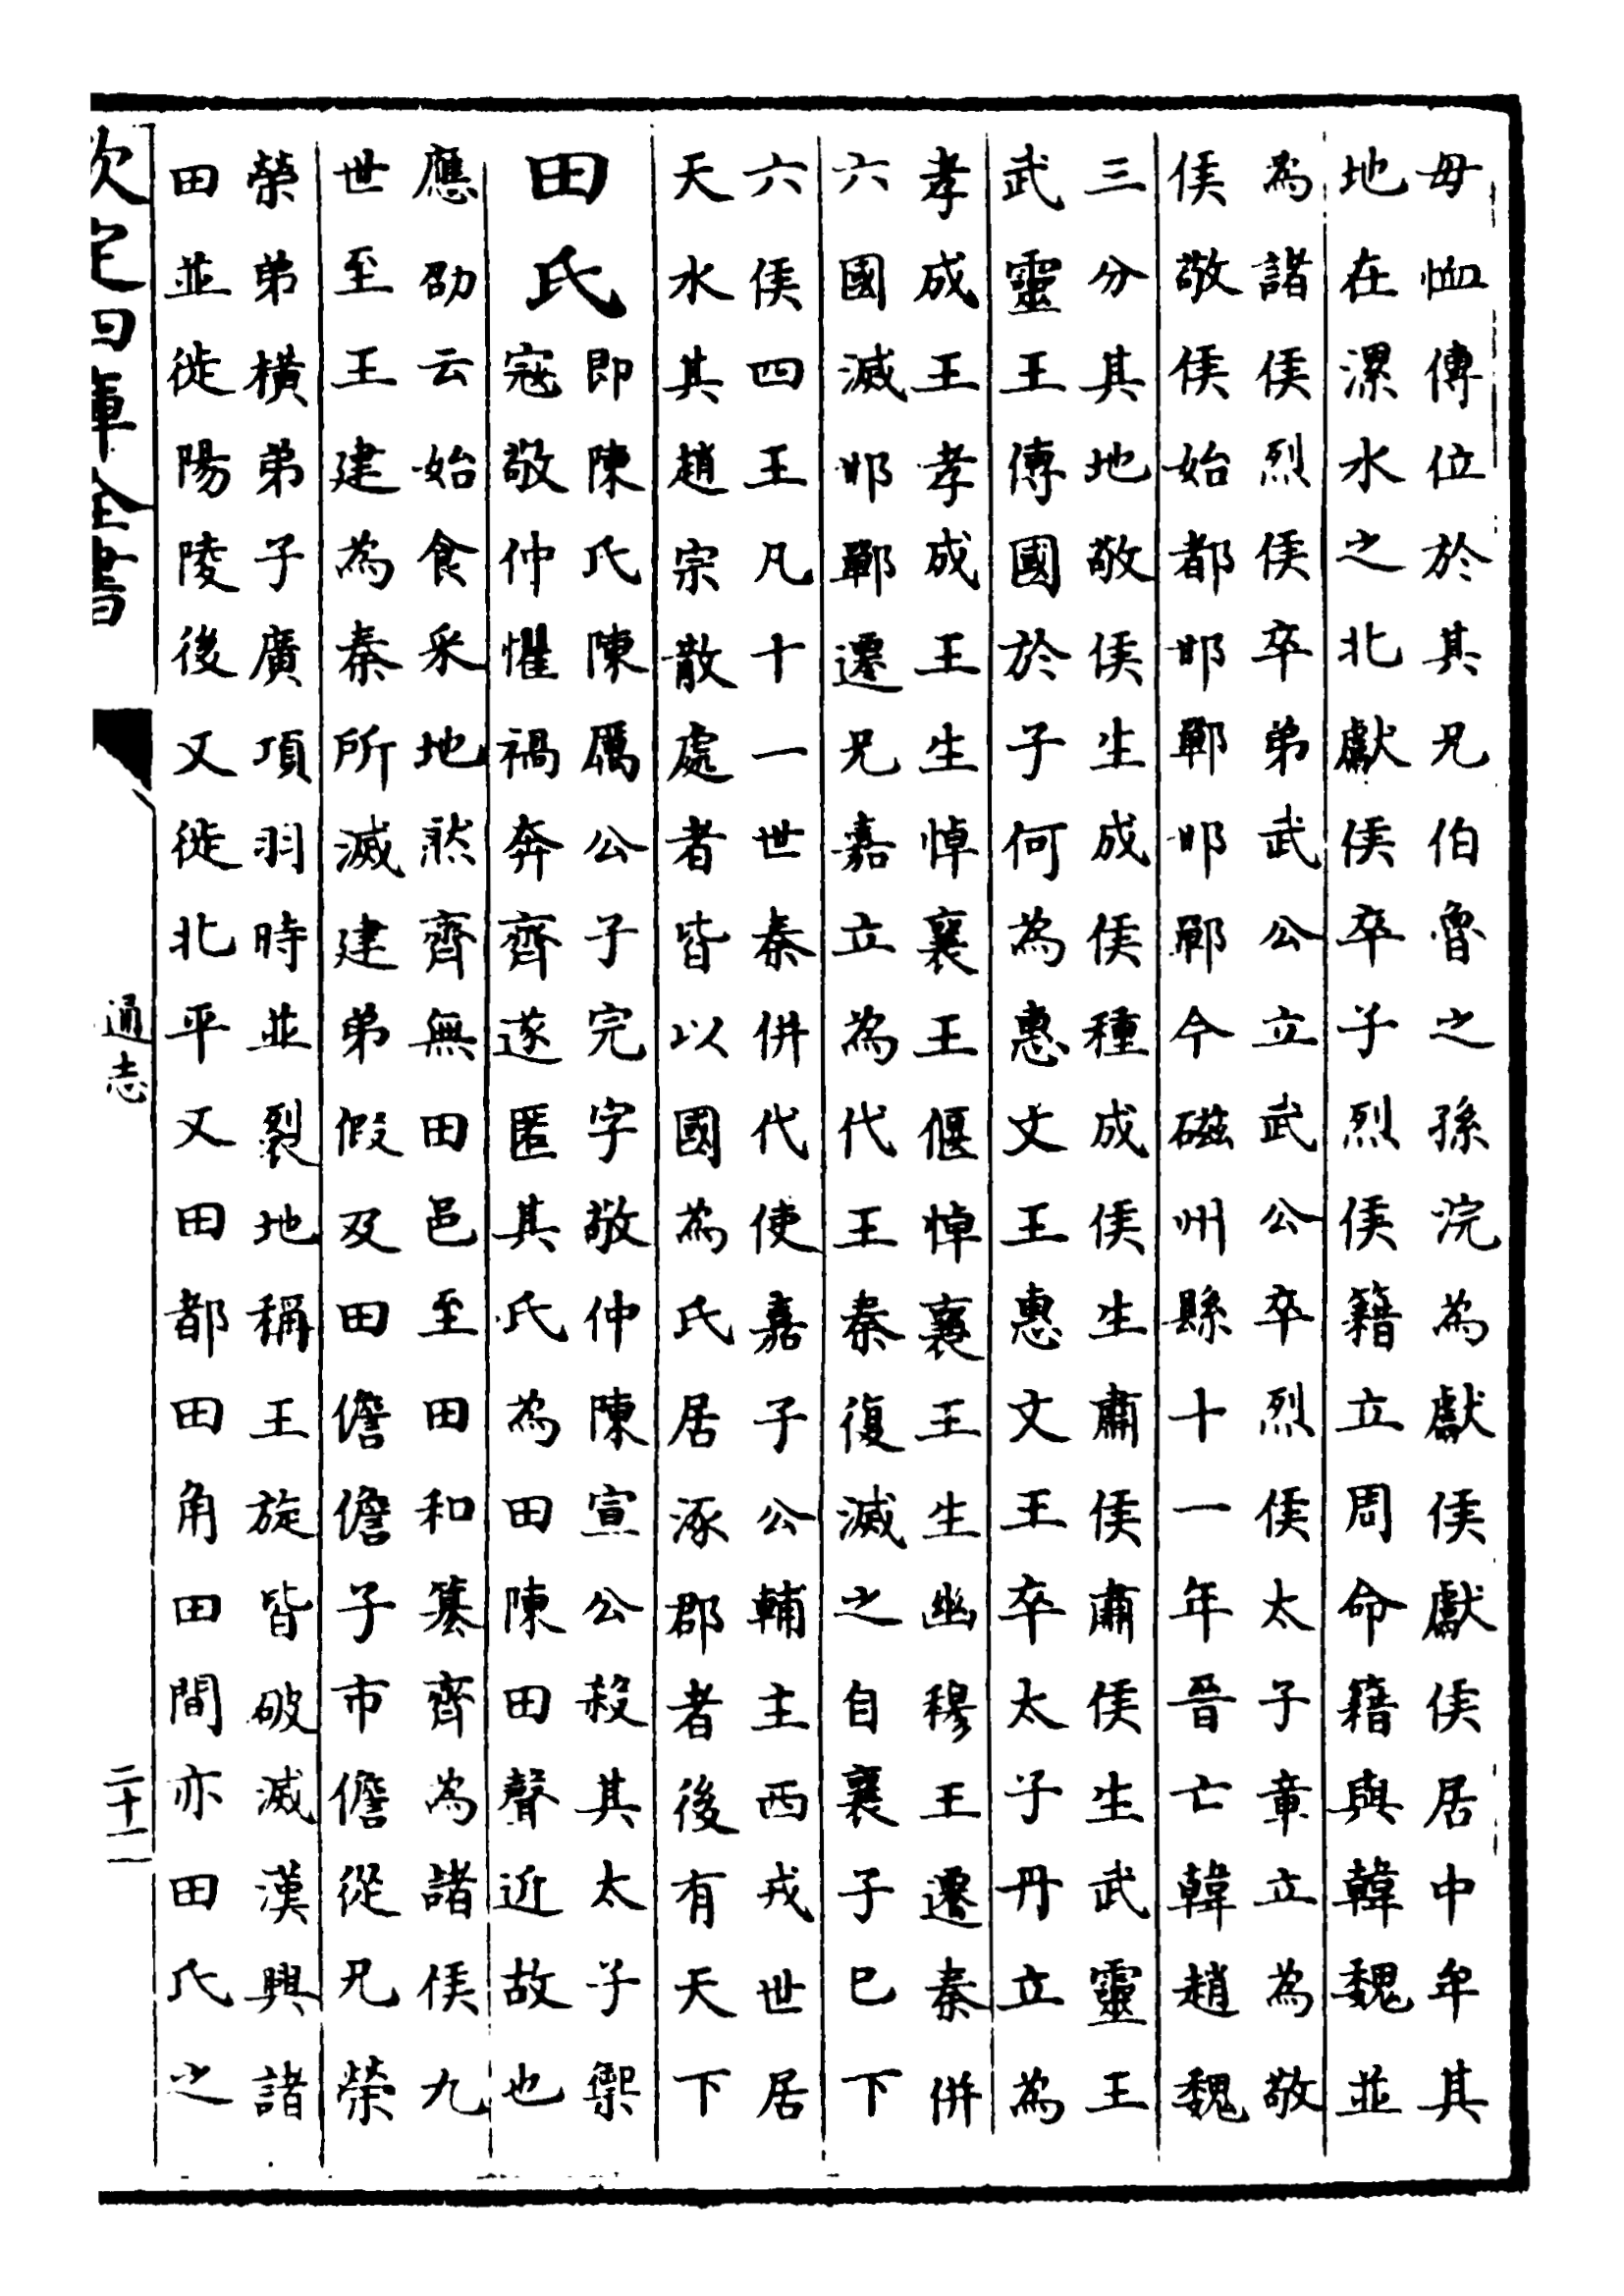 毋恤傳位於其兄伯魯之孫浣為獻侯獻侯居中牟其
地在漯水之北獻侯卒子烈侯籍立周命籍與韓魏並
為諸侯烈侯卒弟武公立武公卒烈侯太子章立為敬
侯敬侯始都邯鄲邯鄲今磁州縣十一年晉亡韓趙魏
三分其地敬侯生成侯種成侯生肅侯肅侯生武靈王
武靈王傳國於子何為惠文王惠文王卒太子丹立為
孝成王孝成王生悼襄王偃悼襄王生幽穆王遷秦併
六國滅邯鄲遷兄嘉立為代王秦復滅之自襄子巳下
六侯四王凡十一世秦併代使嘉子公輔主西戎世居
天水其趙宗散處者皆以國為氏居涿郡者後有天下
田氏
即陳氏陳厲公子完字敬仲陳宣公殺其太子禦
寇敬仲懼禍奔齊遂匿其氏為田陳田聲近故也
應劭云始食采地然齊無田邑至田和簒齊為諸侯九
世至王建為秦所滅建弟假及田儋儋子市儋從兄榮
榮弟橫弟子廣項羽時並裂地稱王旋皆破滅漢興諸
田並徙陽陵後又徙北平又田都田角田間亦田氏之
欽定四庫全書
通志
二十二